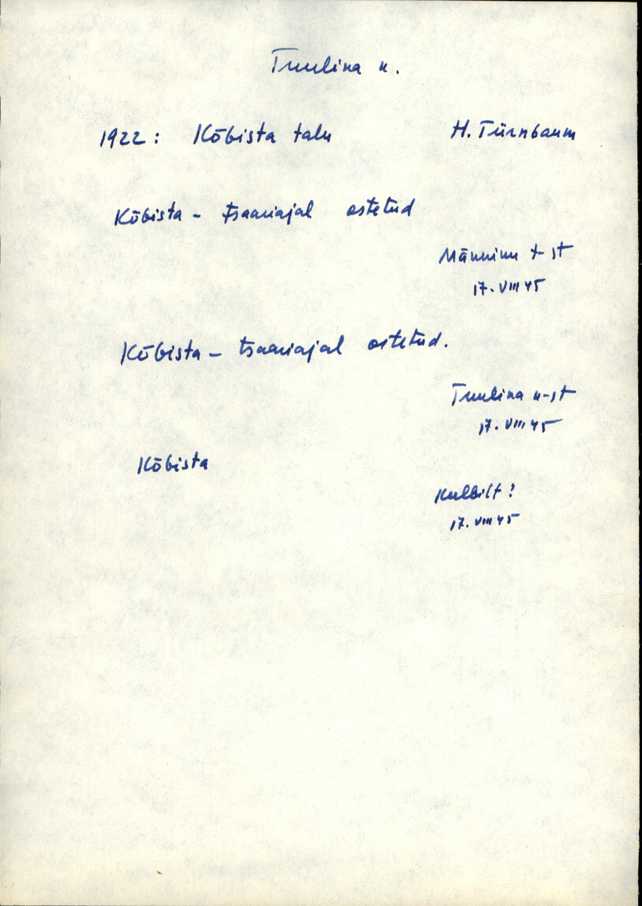 Tuulina n.
1922: Kõbista talu H. Türnbaum
Kõbista - tsaariajal ostetud
Männimu t-st
17. VIII 45
Kõbista - tsaariajal ostetud.
Tuulina n-st
17. VIII 45
Kõbista
17. VIII 45